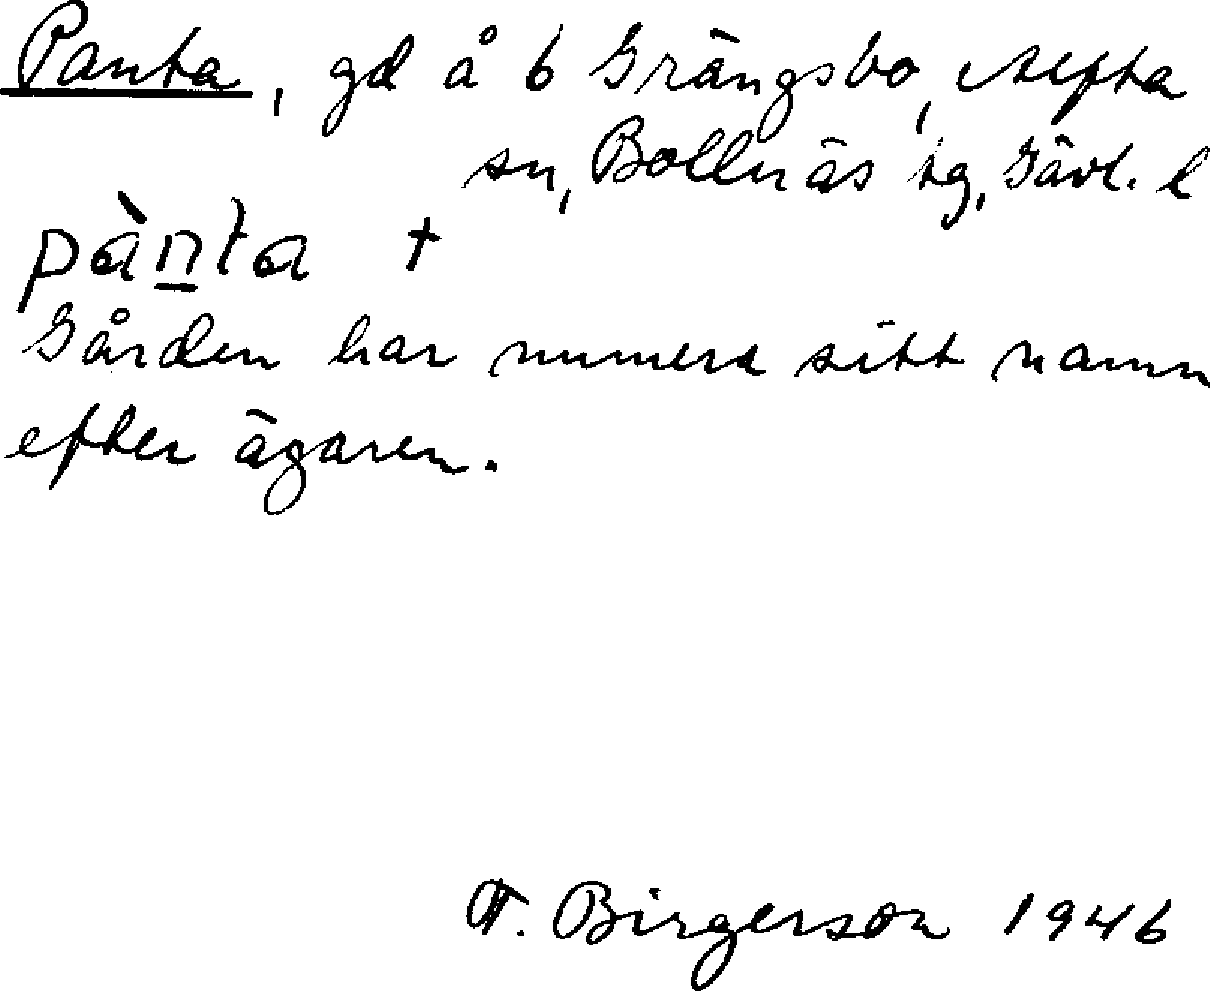 Panta, gd å 6 Grängsbo, Alfta
sn, Bollnäs tg, Gävl. l
pànta †
Gården har numera sitt namn
efter ägaren.
T. Birgerson 1946